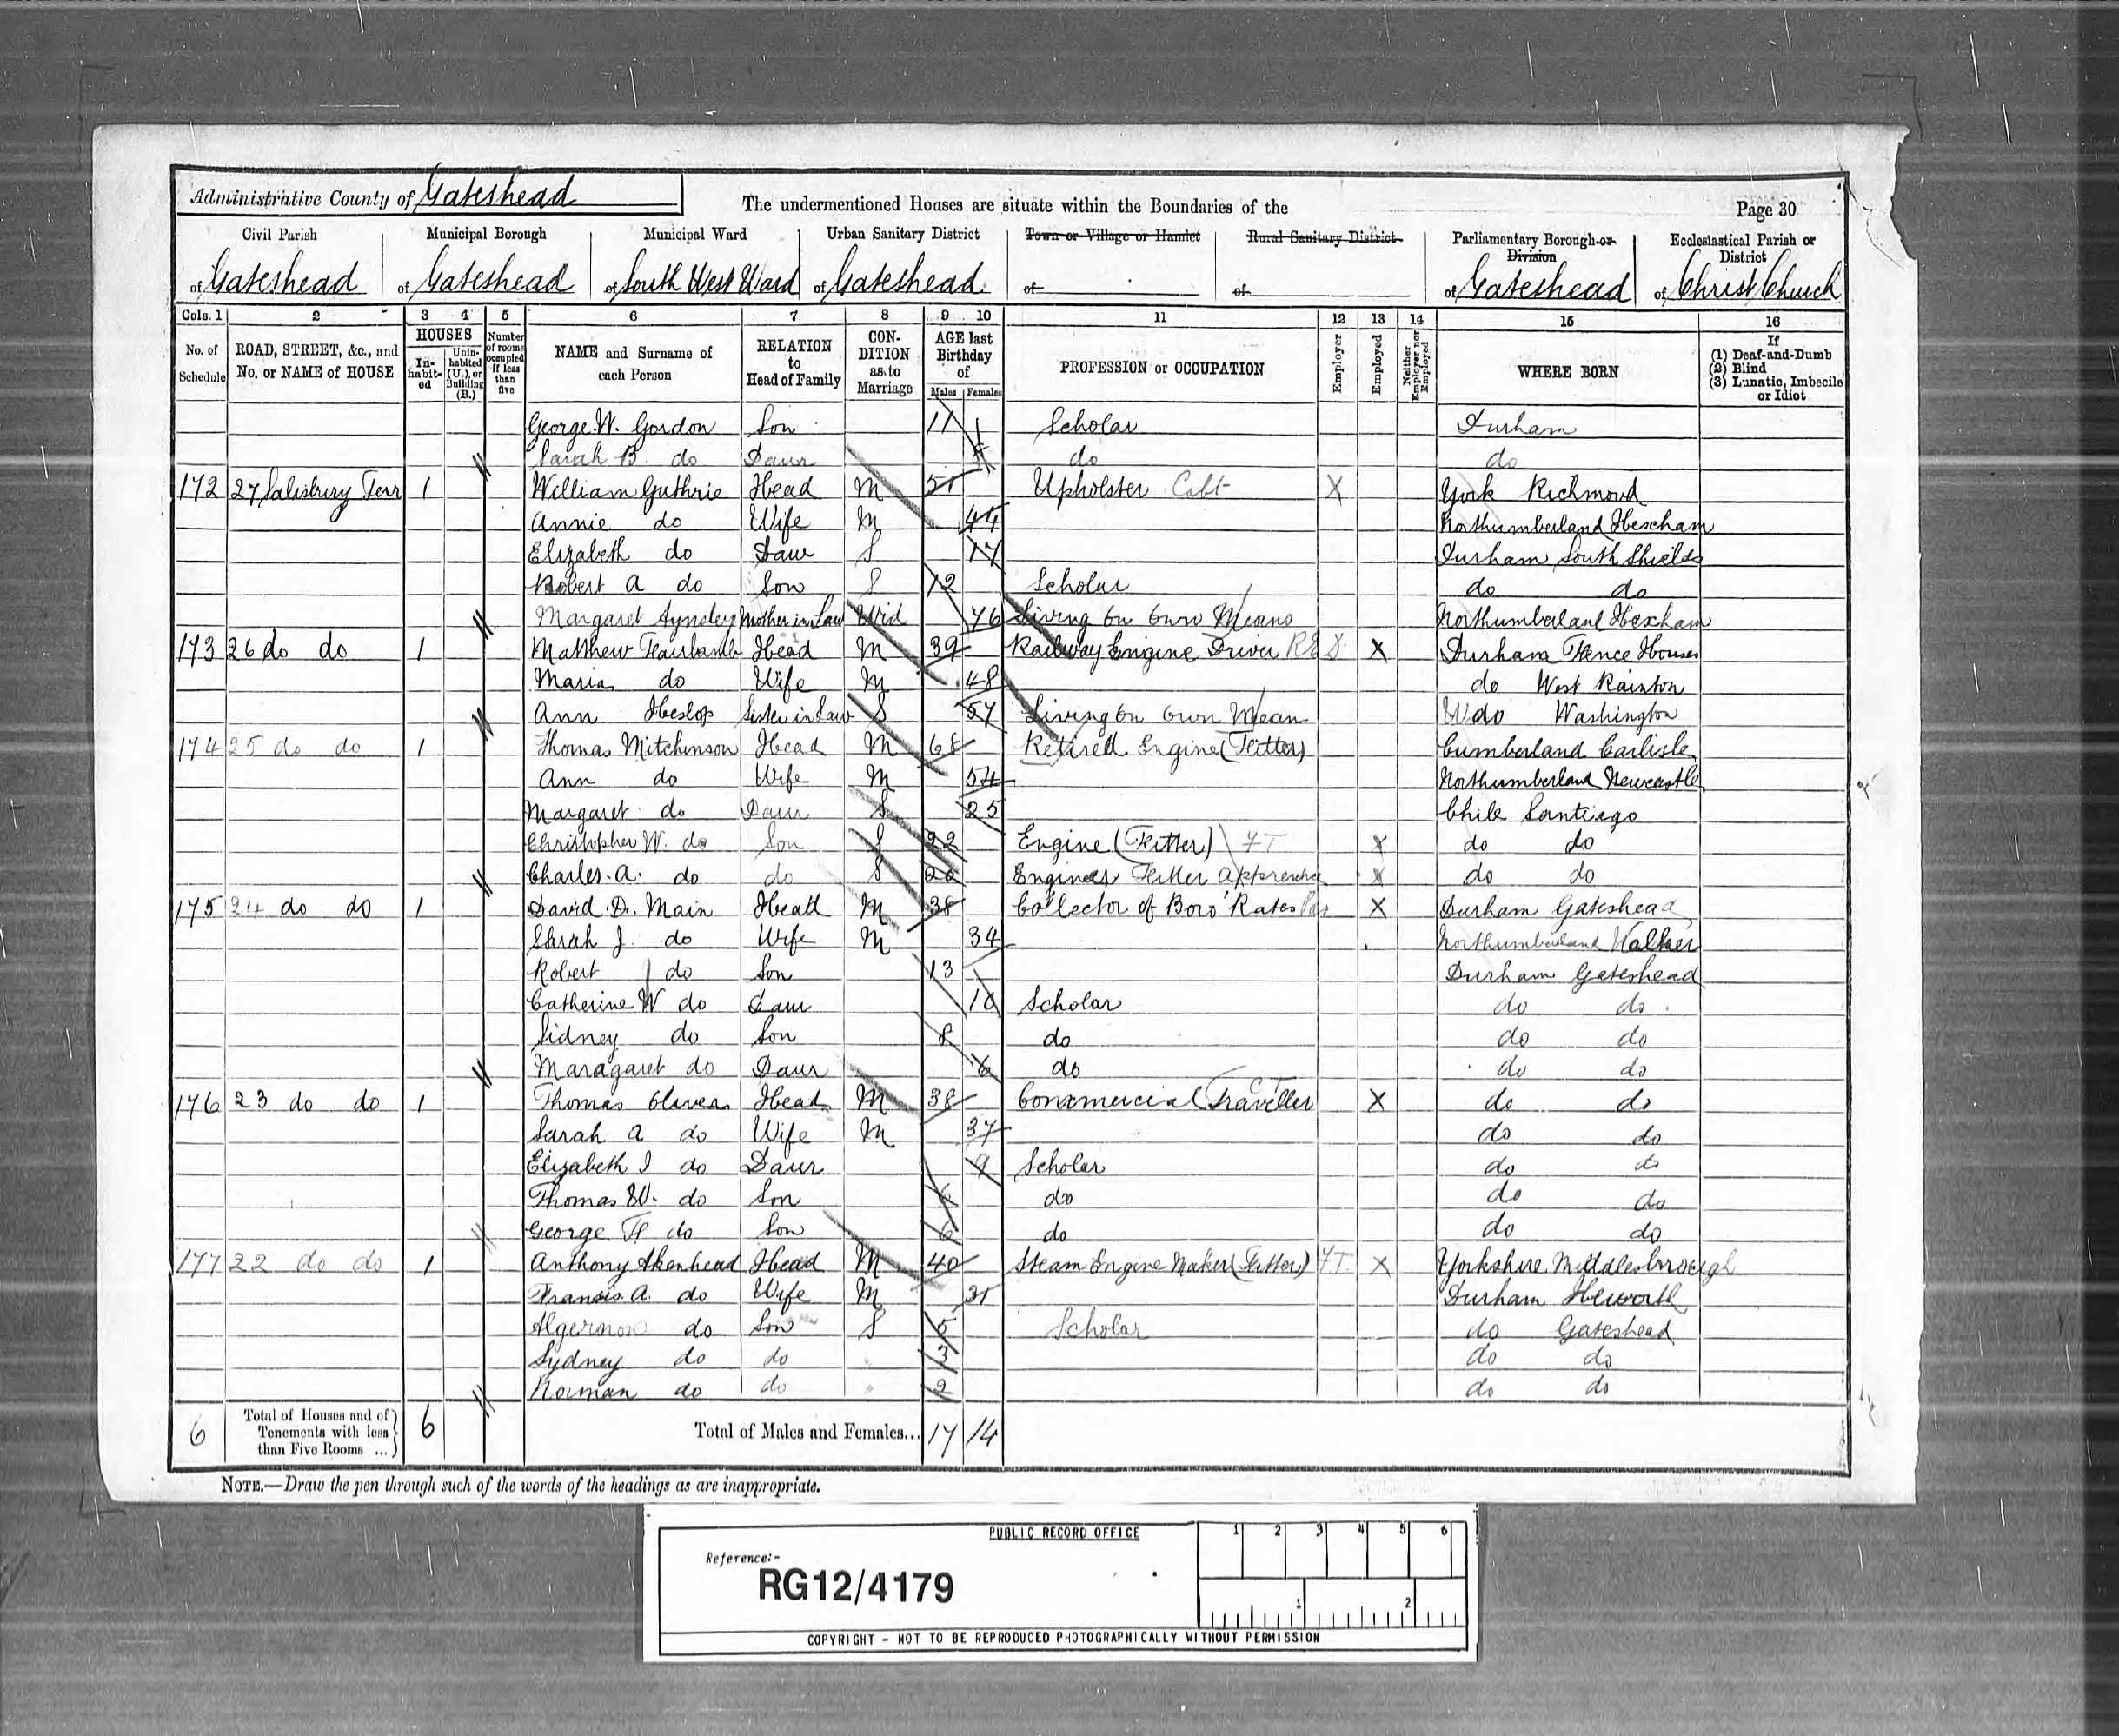 Administrative County of Gateshead
The undermentioned Houses are situate within the Boundaries of the
Page 30
Civil Parish Municipal Borough Municipal Ward Urban Sanitary District Town or Village or Hamlet Rural Sanitary District Parliamentary Borough or Division Ecclesiastical Parish or District
of Gateshead of Gateshead of South West Ward of Gateshead of of of Gateshead of Christ Church
Cols. 1 2 3 4 5 6 7 8 9 10 11 12 13 14 15 16
No. of Schedule ROAD, STREET, &c., and No. or NAME of HOUSE HOUSES In-habit-ed Unin-habited (U.), or Building (B.) Number of rooms occupied if less than five NAME and Surname of each Person RELATION to Head of Family CON-DITION as to Marriage AGE last Birthday of Males Females PROFESSION or OCCUPATION Employer Employed Neither Employer nor Employed WHERE BORN If (1) Deaf-and-Dumb (2) Blind (3) Lunatic, Imbecile or Idiot
George W. Gordon Son 11 Scholar Durham
Sarah B do Daur do do
172 27 Salisbury Terr 1 William Guthrie Head M 51 Upholster Cabt X York Richmond
Annie do Wife M 44 Northumberland Hexcham
Elizabeth do Daur S 17 Durham South Shields
Robert A do Son S 12 Scholar do do
Margaret Aynsley Mother in Law Wid 76 Living on own Means Northumberland Hexham
173 26 do do 1 Matthew Fairbairn Head M 39 Railway Engine Driver X Durham Fence Houses
Maria do Wife M 48 do West Rainton
Ann Heslop Sister in Law S 57 Living on own Mean do Washington
174 25 do do 1 Thomas Mitchinson Head M 68 Retired Engine (Fitter) Cumberland Carlisle
Ann do Wife M 54 Northumberland Newcastle
Margaret do Daur S 25 Chile Santiego
Christopher W. do Son S 22 Engine (Fitter) FT X do do
Charles. A. do do S 20 Engines Fitter Apprentice X do do
175 24 do do 1 David. D. Main Head M 38 Collector of Boro' Rates X Durham Gateshead
Sarah J. do Wife M 34 Northumberland Walker
Robert J do Son 13 Durham Gateshead
Catherine W do Daur 10 Scholar do do
Sidney do Son 8 do do do
Maragaret do Daur 6 do do do
176 23 do do 1 Thomas Oliver Head M 38 Commercial Traveller CT X do do
Sarah A do Wife M 37 do do
Elizabeth I do Daur 9 Scholar do do
Thomas W. do Son do do do
George F do Son 6 do do do
177 22 do do 1 Anthony Akenhead Head M 40 Steam Engine Maker (Fitter) FT X Yorkshire Middlesborough
Francis. A. do Wife M 31 Durham Heworth
Algernon do Son S 5 Scholar do Gateshead
Sydney do do 3 do do
Norman do do 2 do do
6 Total of Houses and of Tenements with less than Five Rooms ... 6 Total of Males and Females... 17 14
NOTE.—Draw the pen through such of the words of the headings as are inappropriate.
PUBLIC RECORD OFFICE
1 2 3 4 5 6
Reference:-
RG12/4179
1 2
COPYRIGHT - NOT TO BE REPRODUCED PHOTOGRAPHICALLY WITHOUT PERMISSION